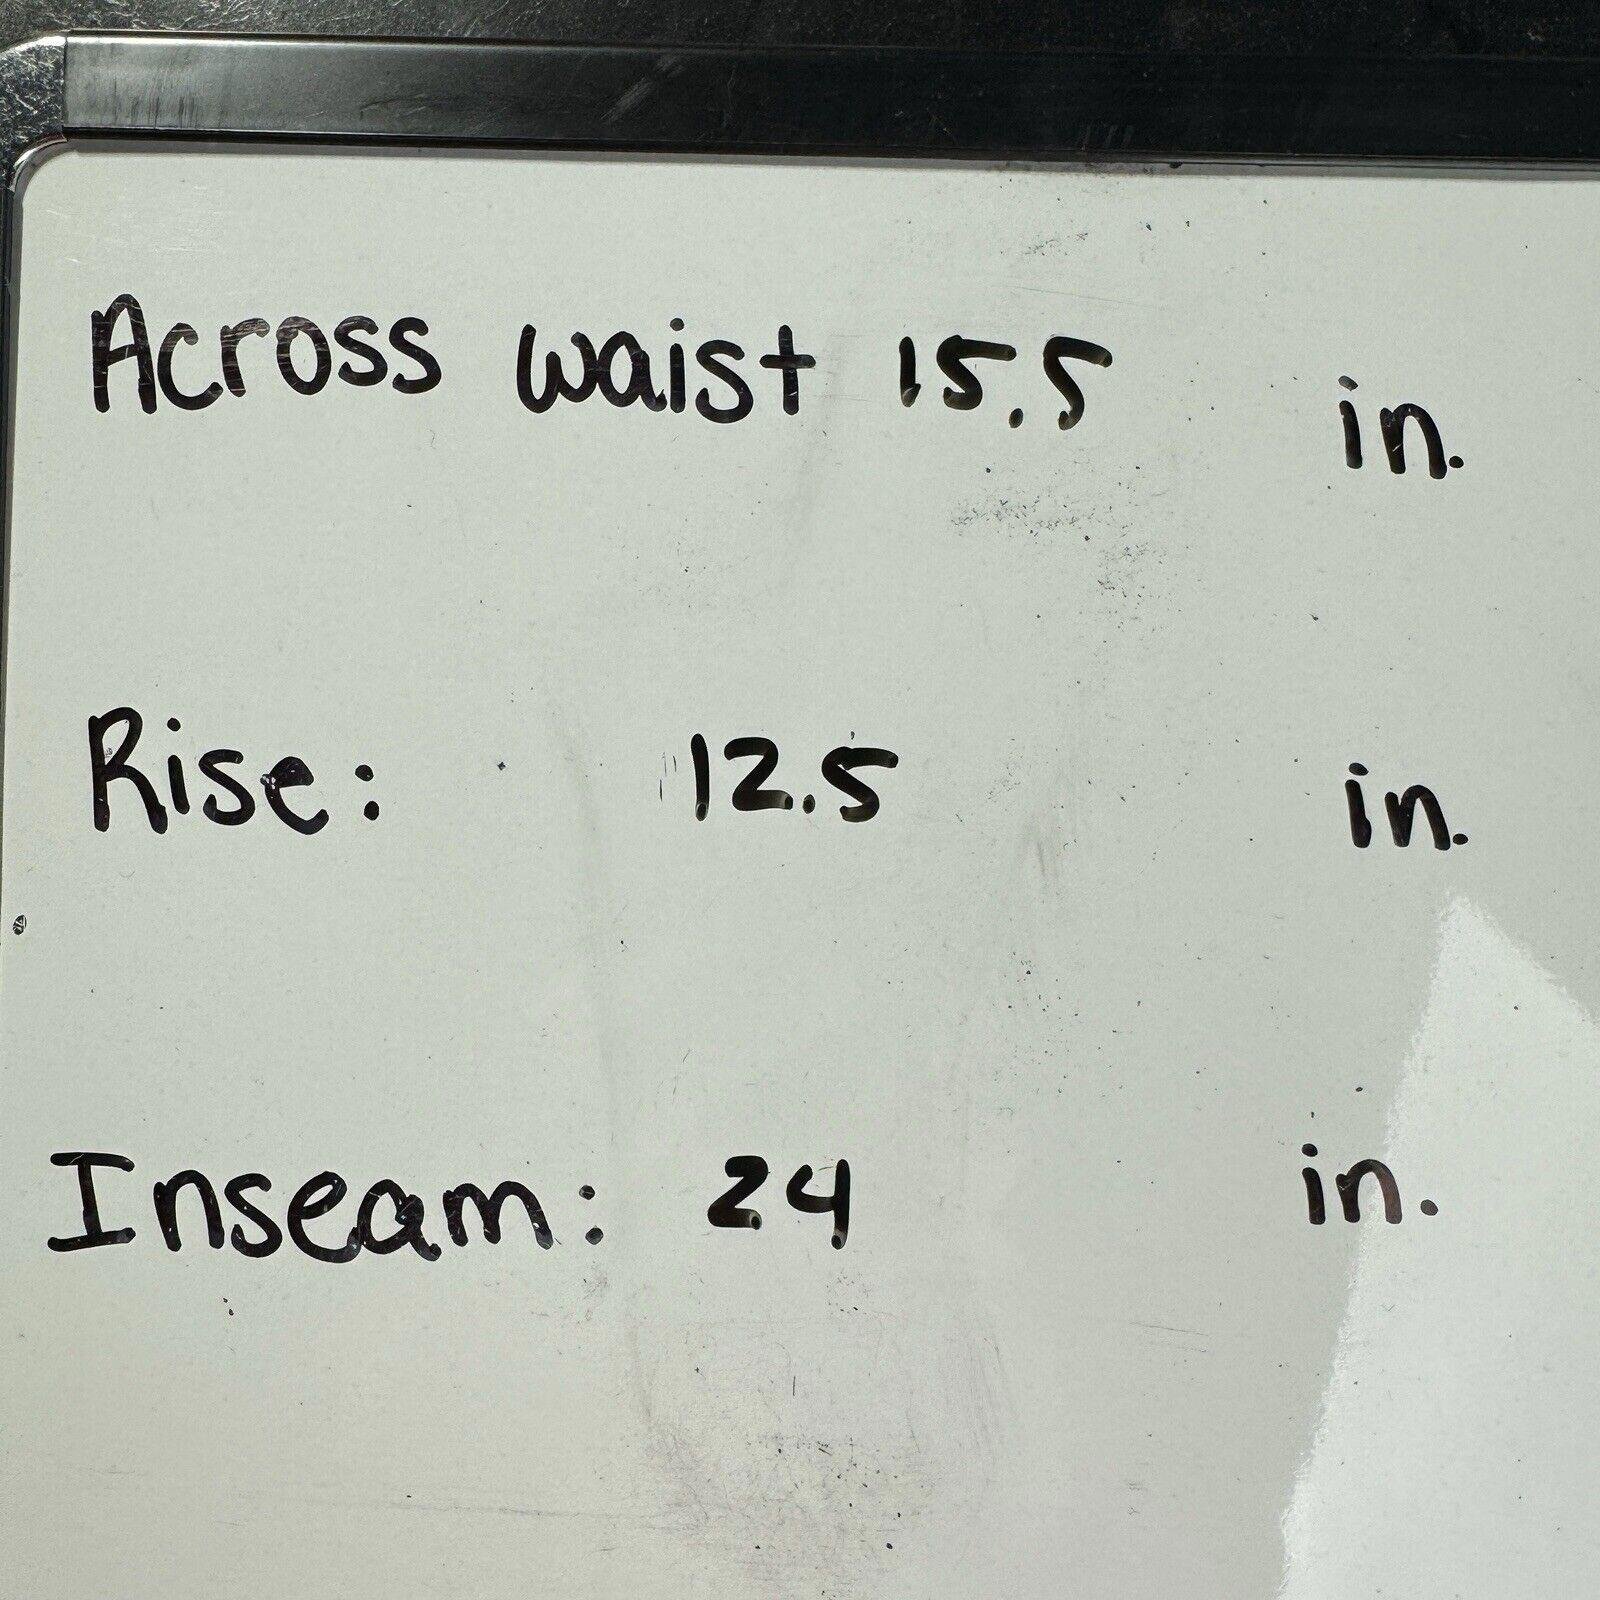 Across waist 15.5 in.
Rise: 12.5 in.
Inseam: 24 in.